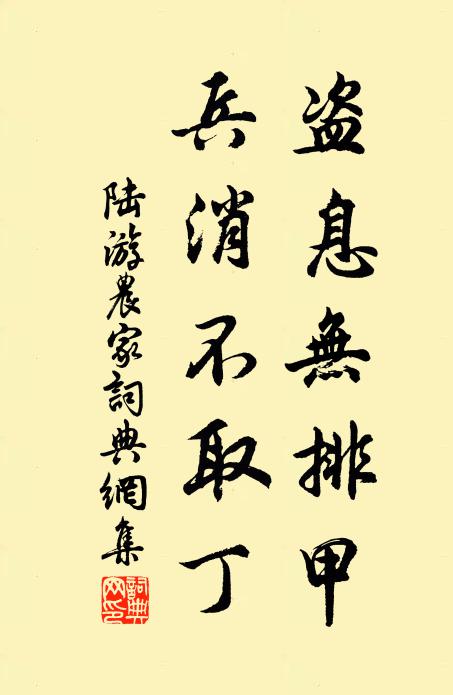 盗息無排甲
兵消不取丁
陆游農家詞典網集
詞典網印